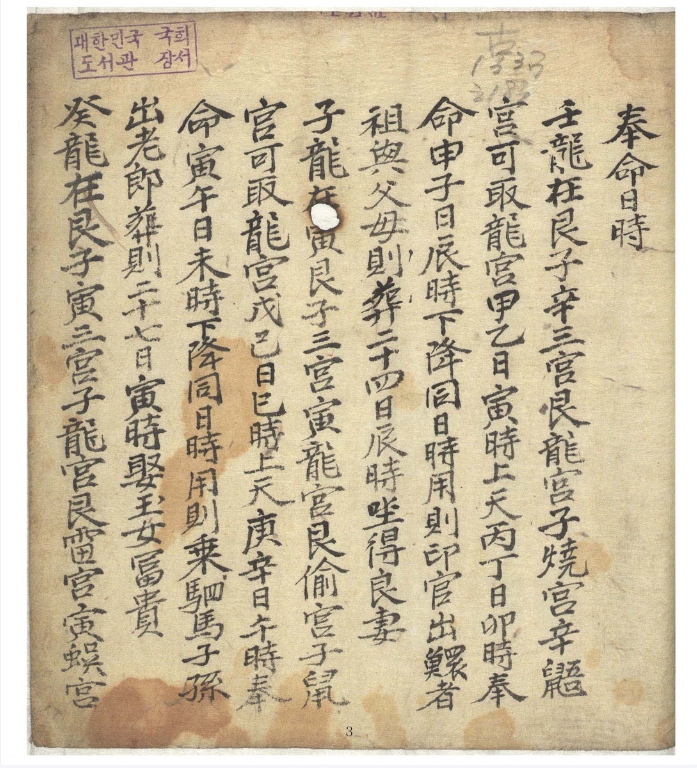 대한민국 국회
도서관 장서
奉命日時
壬龍在艮子辛三宮艮龍宮子燒宮辛
宮可取龍宮甲乙日寅時上天丙丁日卯時奉
命申子日辰時下降同日時用則印官出鰥者
祖與父母則葬二十四日辰時坐得良妻
子龍在寅艮子三宮寅龍宮艮偷宮子鼠
宮可取龍宮戊己日巳時上天庚辛日午時奉
命寅午日未時下降同日時用則乘駟馬子孫
出老郎葬則二十七日寅時娶玉女冨貴
癸龍在艮子寅三宮子龍宮艮雷宮寅蜈宮
3